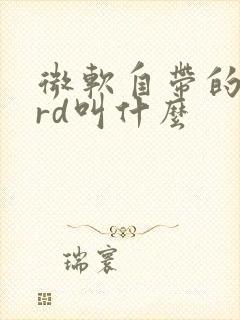 微軟自帶的
rd叫什麼
瑞寰